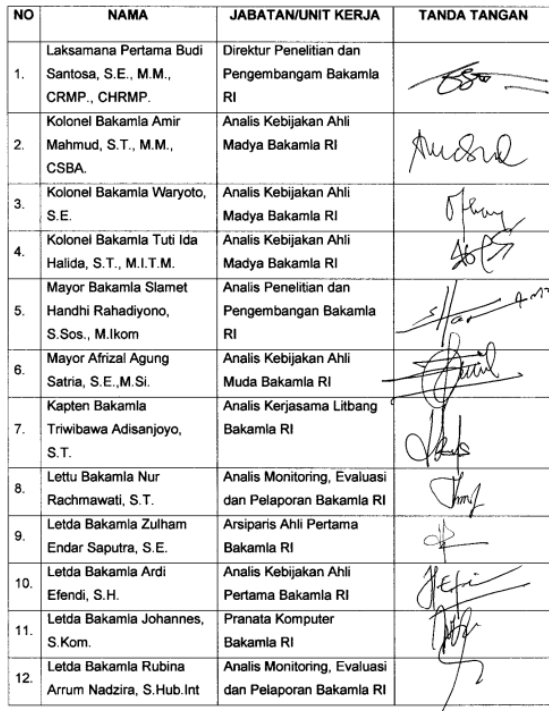 NO NAMA JABATAN/UNIT KERJA TANDA TANGAN
1. Laksamana Pertama Budi Santosa, S.E., M.M., CRMP., CHRMP. Direktur Penelitian dan Pengembangam Bakamla RI
2. Kolonel Bakamla Amir Mahmud, S.T., M.M., CSBA. Analis Kebijakan Ahli Madya Bakamla RI
3. Kolonel Bakamla Waryoto, S.E. Analis Kebijakan Ahli Madya Bakamla RI
4. Kolonel Bakamla Tuti Ida Halida, S.T., M.I.T.M. Analis Kebijakan Ahli Madya Bakamla RI
5. Mayor Bakamla Slamet Handhi Rahadiyono, S.Sos., M.Ikom Analis Penelitian dan Pengembangan Bakamla RI
6. Mayor Afrizal Agung Satria, S.E.,M.Si. Analis Kebijakan Ahli Muda Bakamla RI
7. Kapten Bakamla Triwibawa Adisanjoyo, S.T. Analis Kerjasama Litbang Bakamla RI
8. Lettu Bakamla Nur Rachmawati, S.T. Analis Monitoring, Evaluasi dan Pelaporan Bakamla RI
9. Letda Bakamla Zulham Endar Saputra, S.E. Arsiparis Ahli Pertama Bakamla RI
10. Letda Bakamla Ardi Efendi, S.H. Analis Kebijakan Ahli Pertama Bakamla RI
11. Letda Bakamla Johannes, S.Kom. Pranata Komputer Bakamla RI
12. Letda Bakamla Rubina Arrum Nadzira, S.Hub.Int Analis Monitoring, Evaluasi dan Pelaporan Bakamla RI